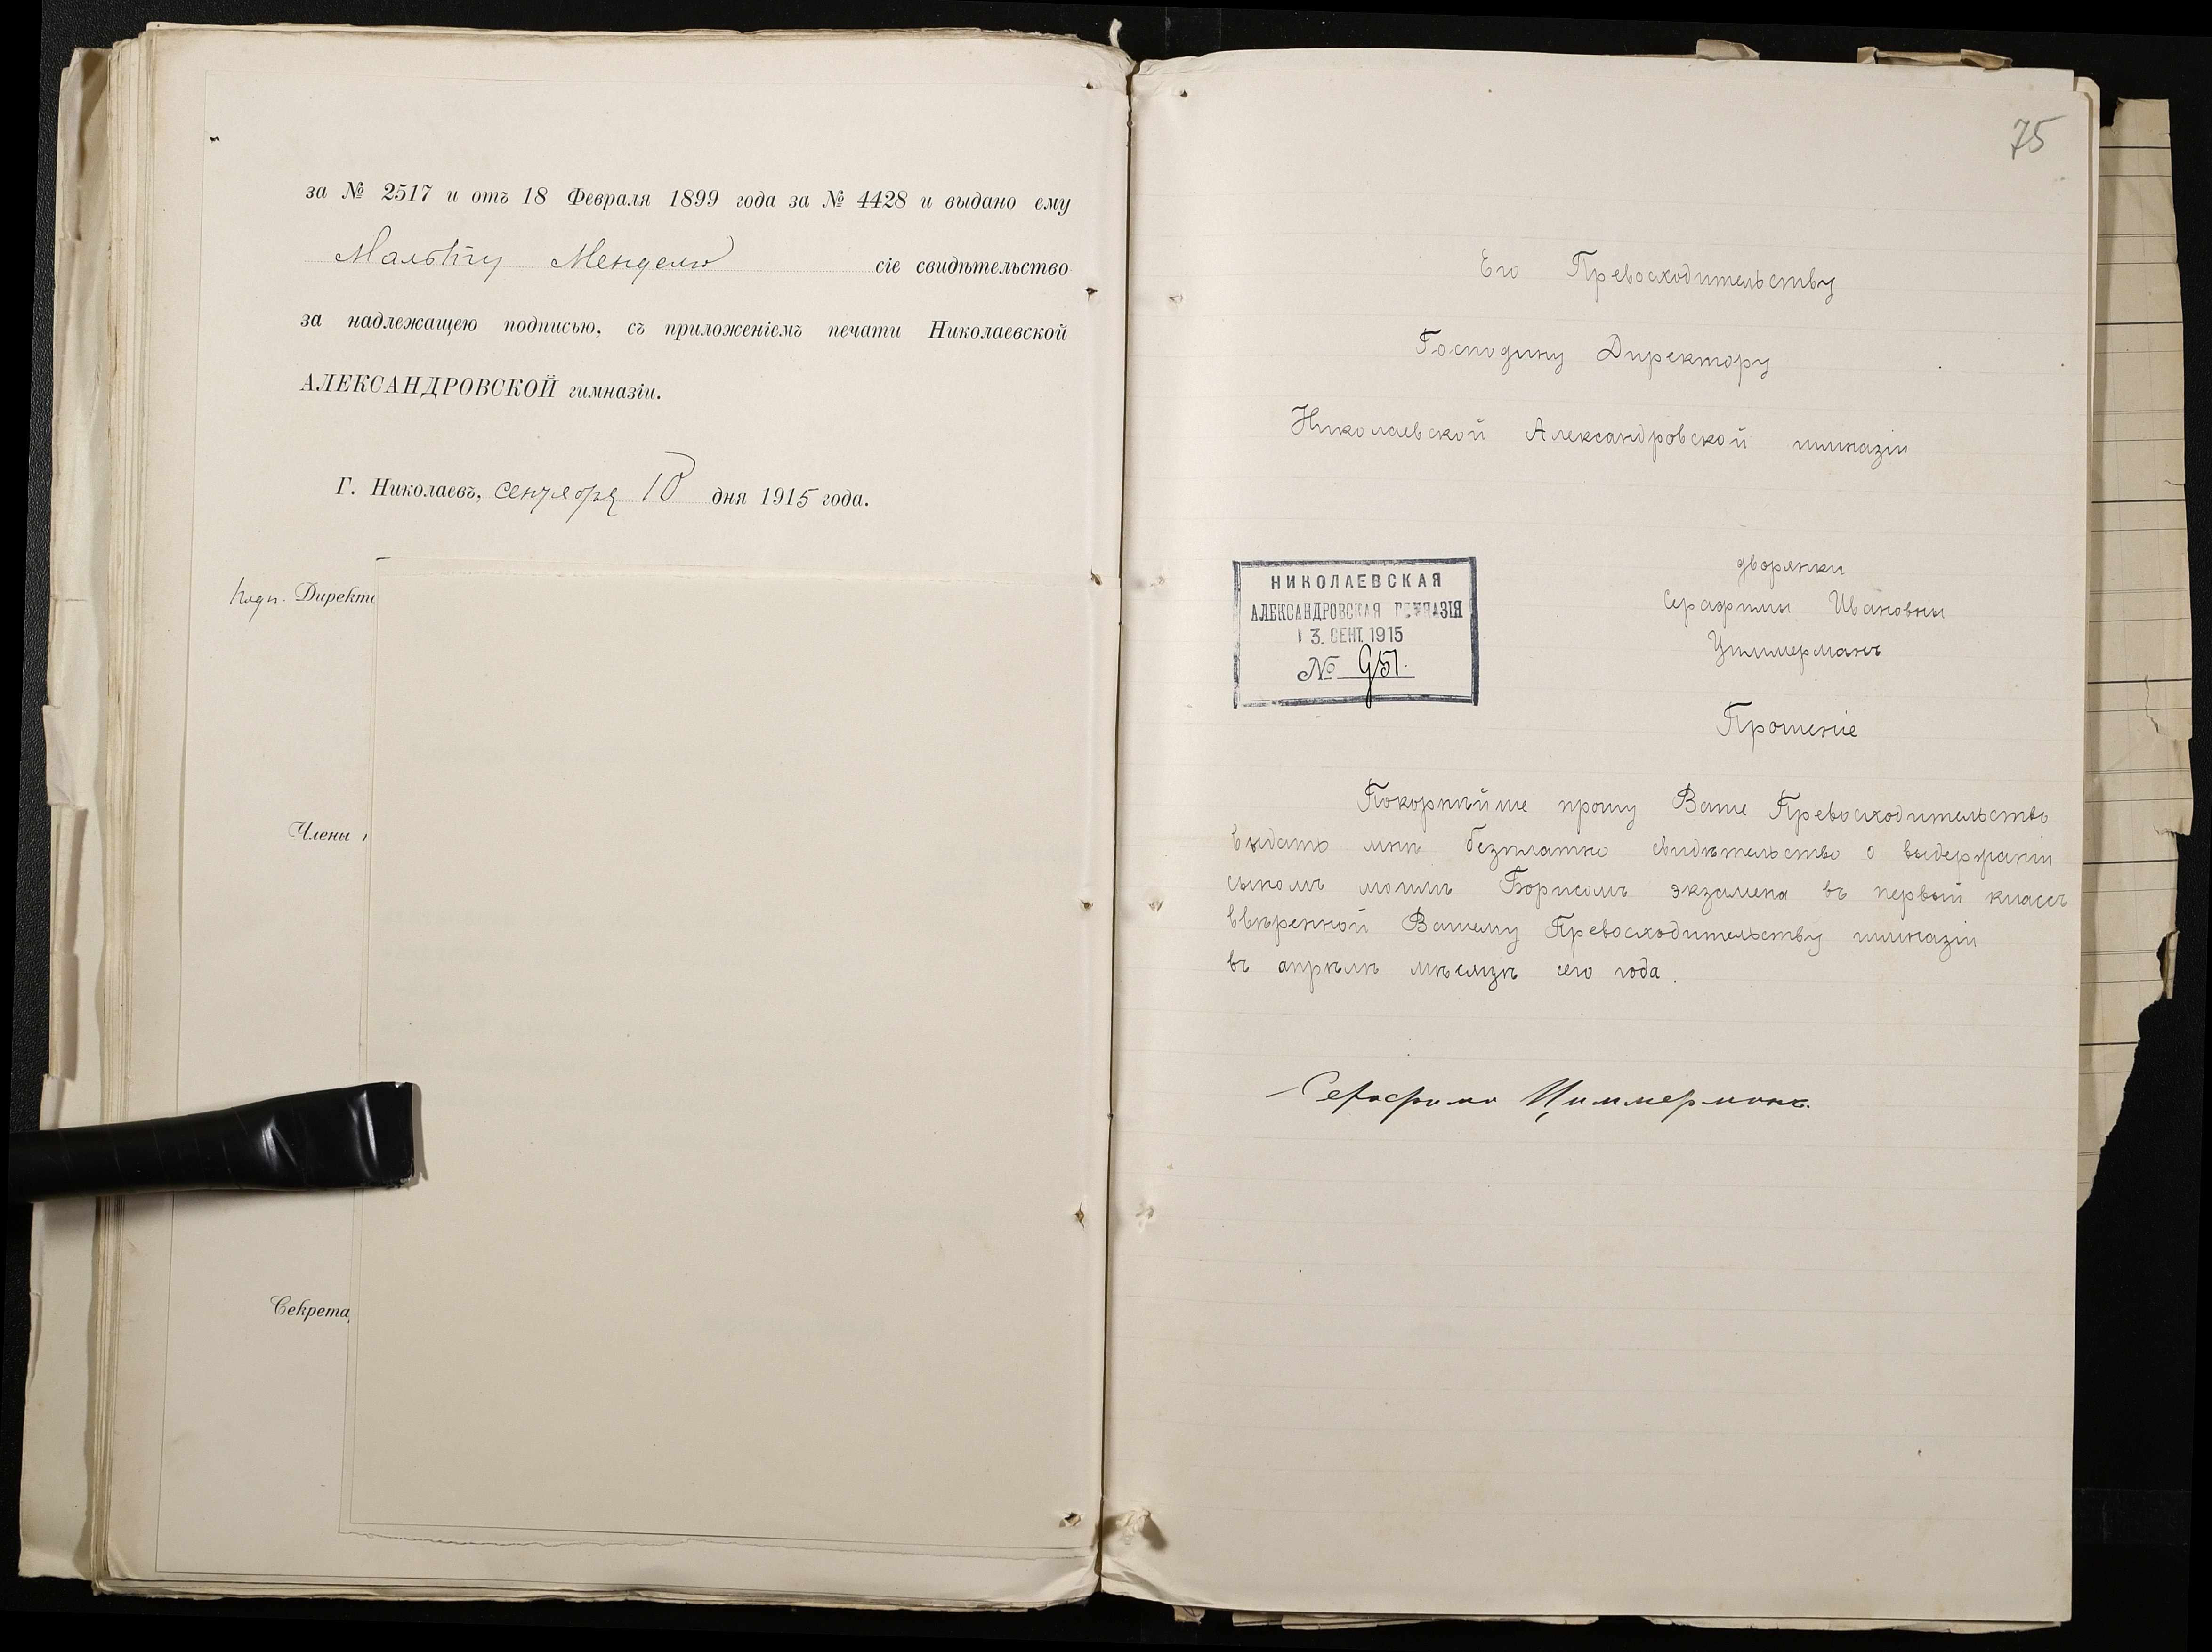 за № 2517 и отъ 18 Февраля 1899 года за № 4428 и выдано ему
Менделю сіе свидѣтельство
за надлежащею подписью, съ приложеніемъ печати Николаевской
АЛЕКСАНДРОВСКОЙ гимназіи.
Г. Николаевъ, сентября 10 дня 1915 года.
Подп. Директо
Члены
Секрета
75
Его Превосходительству
Господину Директору
Николаевской Александровской гимназіи
НИКОЛАЕВСКАЯ
АЛЕКСАНДРОВСКАЯ ГИМНАЗІЯ
13. СЕНТ. 1915
№ 951.
дворянки
Серафимы Ивановны
Циммерманъ
Прошеніе
Покорнѣйше прошу Ваше Превосходительство
выдать мнѣ безплатно свидѣтельство о выдержаніи
сыномъ моимъ Борисомъ экзамена въ первый классъ
ввѣренной Вашему Превосходительству гимназіи
въ апрѣлѣ мѣсяцѣ сего года.
Серафима Циммерманъ.